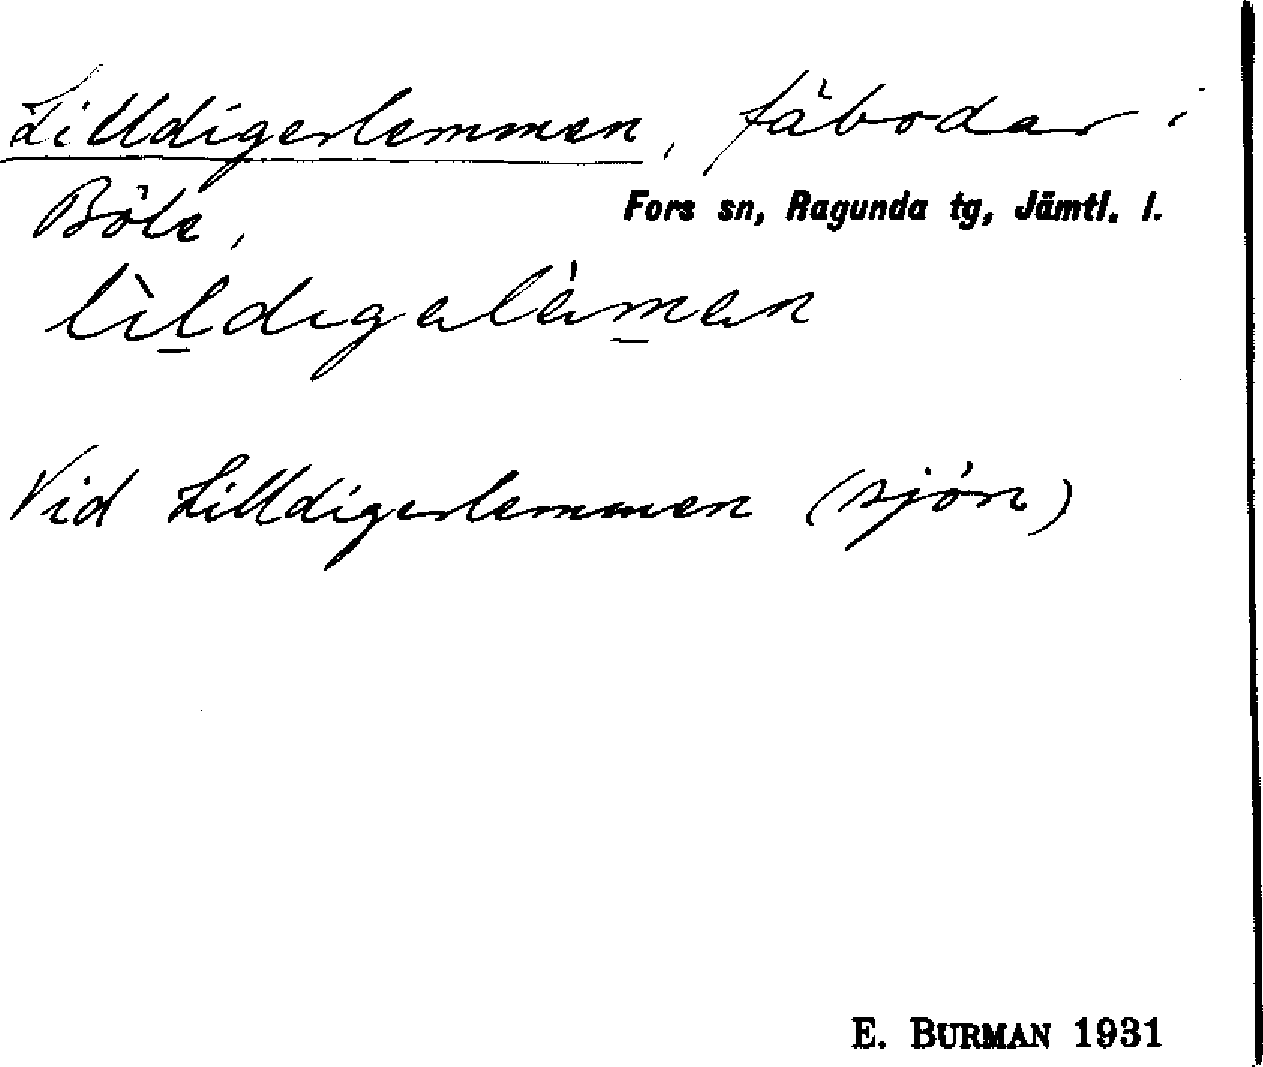 Lilldigerlemmen, fäbodar i
Böle, Fors sn, Ragunda tg, Jämtl. l.
lìl̲digalèm̲en
Vid Lilldigerlemmen (sjön)
E. BURMAN 1931